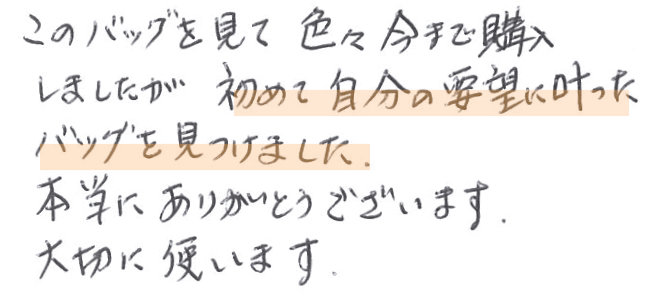 このバッグを見て 色々今まで購入
しましたが 初めて自分の要望に叶った
バッグを見つけました.
本当にありがとうございます.
大切に使います.